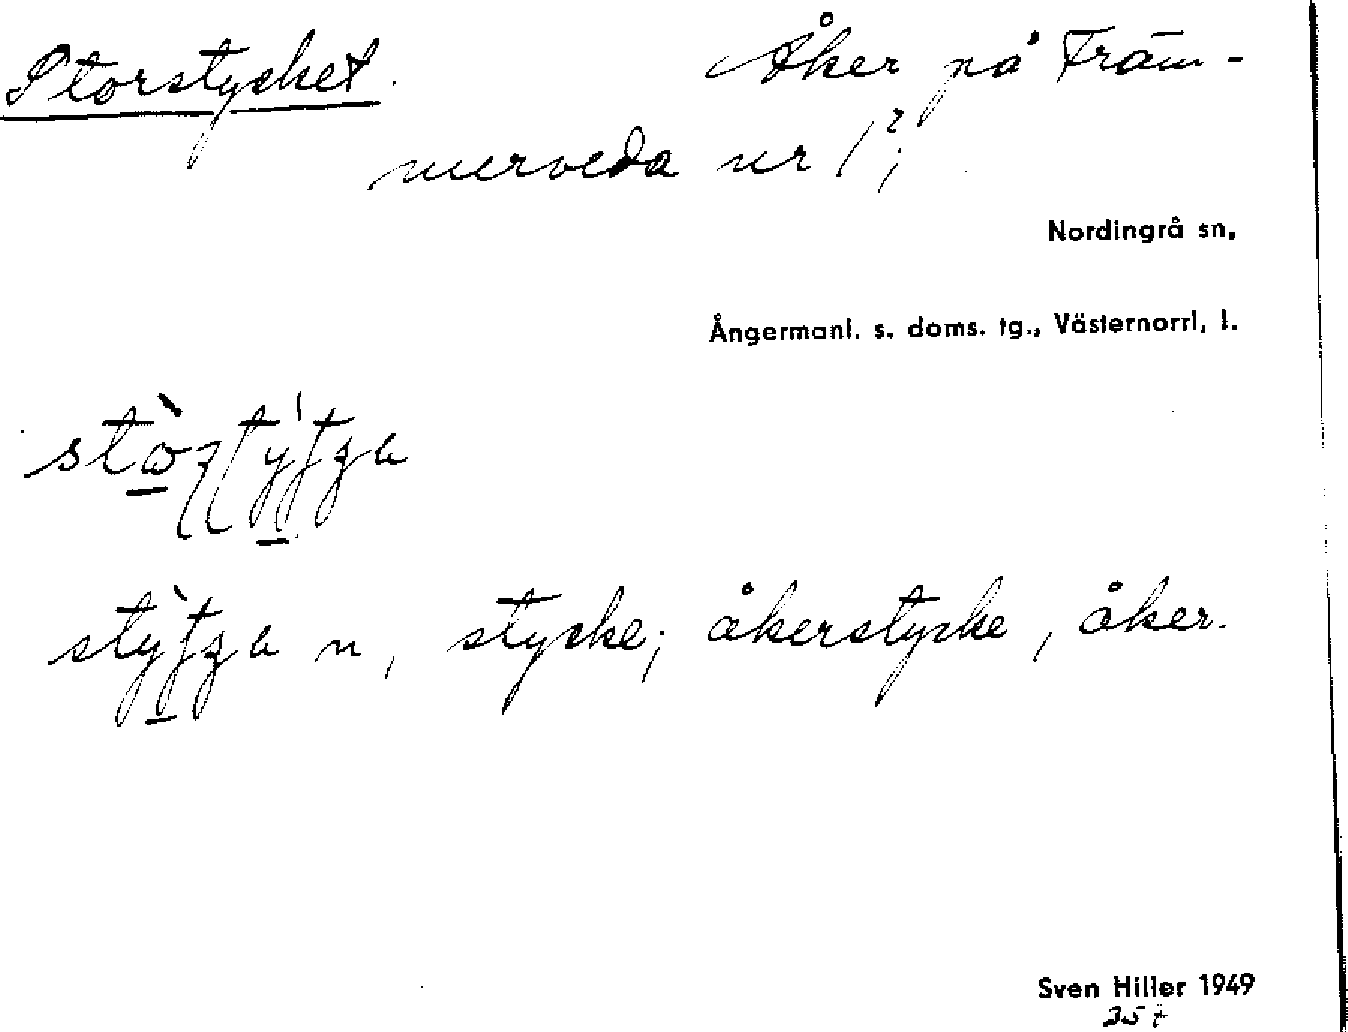 Storstycket. Åker på Främ-
merveda nr 1²;
Nordingrå sn,
Ångermanl. s. doms. tg., Västernorrl. l.
n, stycke; åkerstycke, åker.
Sven Hiller 1949